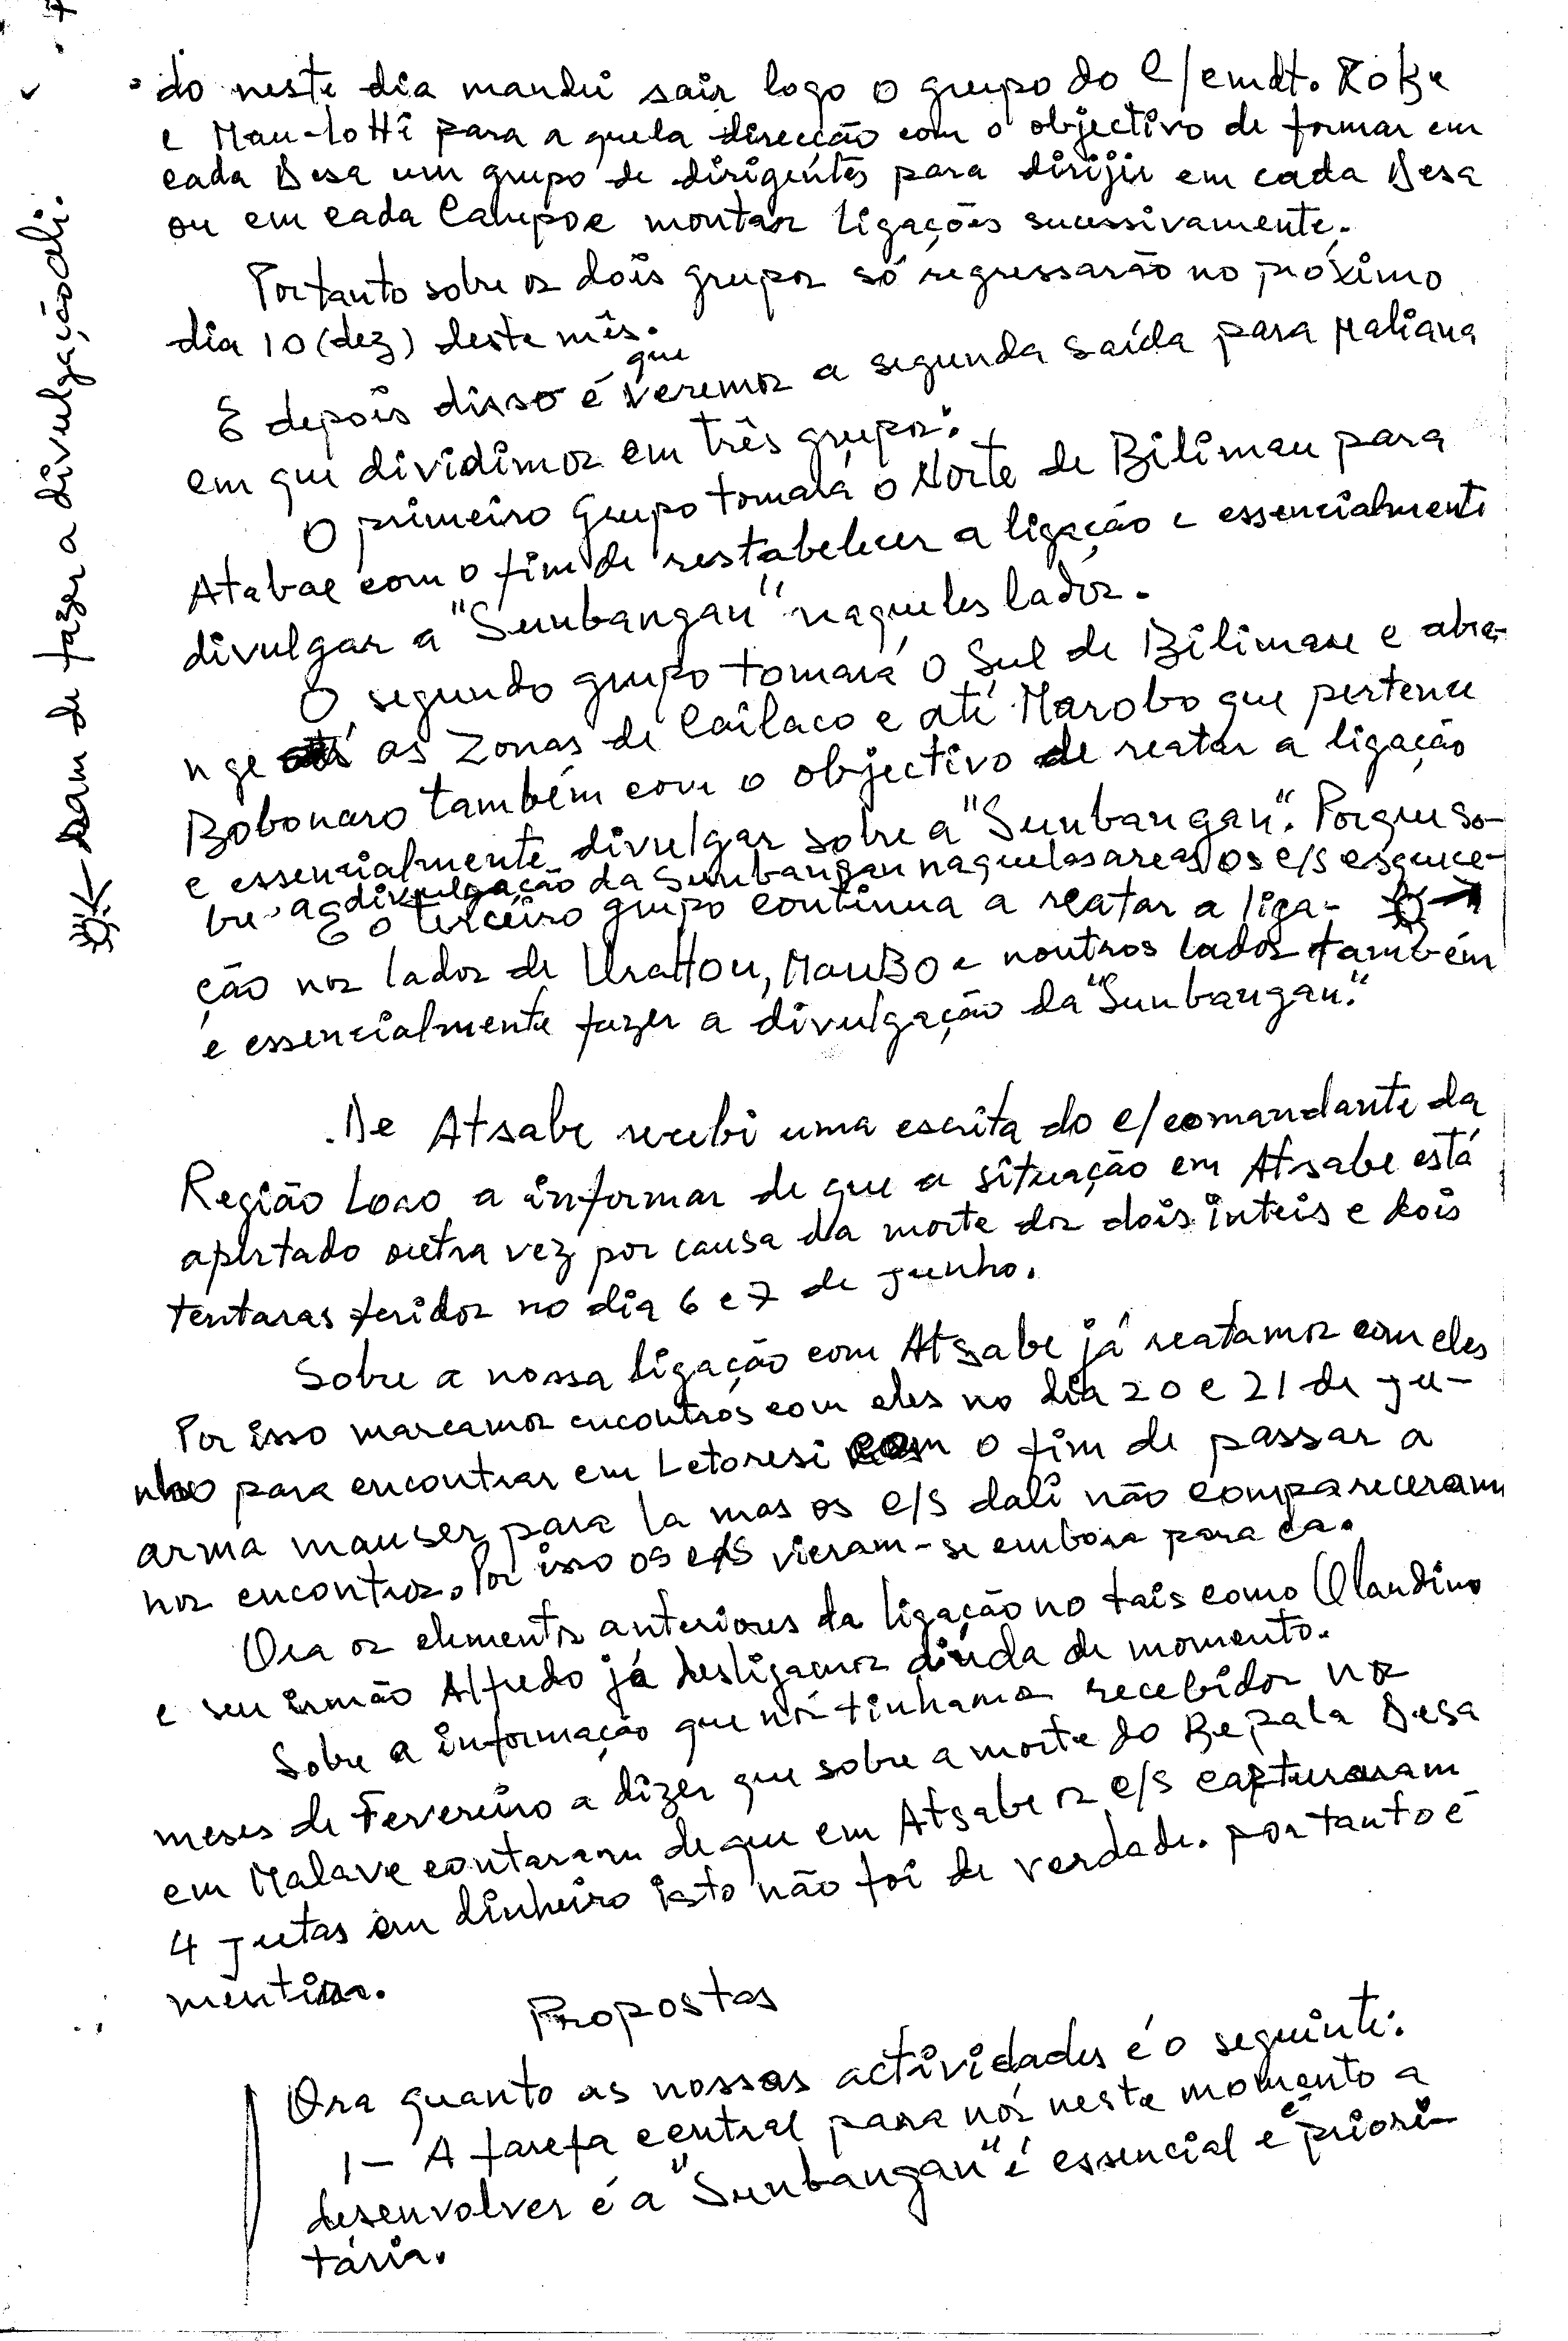 do neste dia mandei sair logo o grupo do C/cmdt. KoBe
e Mau-Lotti para a quela direcção com o objectivo de formar em
cada Desa um grupo de dirigentes para dirijir em cada Desa
ou em cada Campo e montar ligações sucessivamente.
Portanto sobre os dois grupos só regressarão no próximo
dia 10 (dez) deste mês.
E depois disso é que veremos a segunda saída para Maliana
em que dividimos em três grupos:
O primeiro grupo tomará o Norte de Bilimau para
Atabae com o fim de restabelecer a ligação e essencialmente
divulgar a "Sunbangan" naqueles lados.
O segundo grupo tomará o Sul de Bilimau e abra-
nge as zonas de Cailaco e até Marobo que pertence
Bobonaro também com o objectivo de reatar a ligação
e essencialmente divulgar sobre a "Sunbangan". Porque so-
bre a divulgação da Sunbangan naquelas areas os c/s esquece-
ram de fazer a divulgação dli.
E o terceiro grupo continua a reatar a liga-
ção nos lados de UraHou, MauBo e noutros lados também
e essencialmente fazer a divulgação da "Sunbangan."
De Atsabe recebi uma escrita do c/comandante da
Região Loco a informar de que a situação em Atsabe está
apertado outra vez por causa da morte dos dois inteis e dois
tentaras feridos no dia 6 e 7 de junho.
Sobre a nossa ligação com Atsabe já reatamos com eles
Por isso marcamos encontros com eles no dia 20 e 21 de ju-
nho para encontrar em Letoresi com o fim de passar a
arma mauser para la mas os c/s dali não compareceram
nos encontros. Por isso os c/s vieram-se embora para ca.
Ora os elementos anteriores da ligação no tais como Olandino
e seu irmão Alfredo já desligamos dinda de momento.
Sobre a informação que nós tinhamos recebidos nos
meses de Fevereiro a dizer que sobre a morte do Bepala Desa
em Malave contaram de que em Atsabe os c/s capturaram
4 jutas em dinheiro isto não foi de verdade. portanto é
mentira.
Propostas
Ora quanto as nossas actividades é o seguinte:
1- A tarefa central para nós neste momento a
desenvolver é a "Sunbangan" é essencial e é priori-
tária.